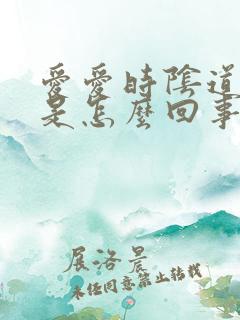 愛愛時陰道
是怎麼回事
展洛晨
未經同意禁止轉載